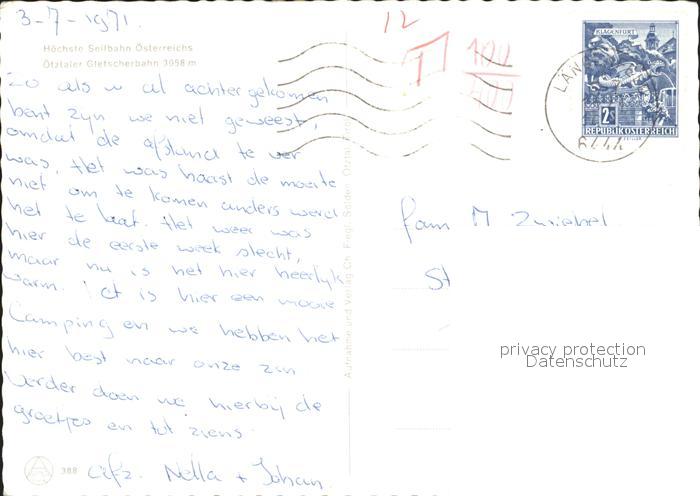 3-7-1971.
Höchste Seilbahn Österreichs
Ötztaler Gletscherbahn 3058 m
Zo als u al achtergekomen
bent zijn we niet geweest,
omdat de afstand te ver
was. Het was haast de moeite
niet om te komen anders werd
het te laat. Het weer was
hier de eerste week slecht,
maar nu is het hier heerlijk
warm. Het is hier een mooie
Camping en we hebben het
hier best naar onze zin
Verder doen we hierbij de
groetjes en tot ziens
388
afz. Nella + Johan.
Aufnahme und Verlag Ch. Sölden Ötztal Tirol
12
T
KLAGENFURT
2S
REPUBLIK ÖSTERREICH
LÄN
6444
fam M Zwiebel
St
privacy protection
Datenschutz